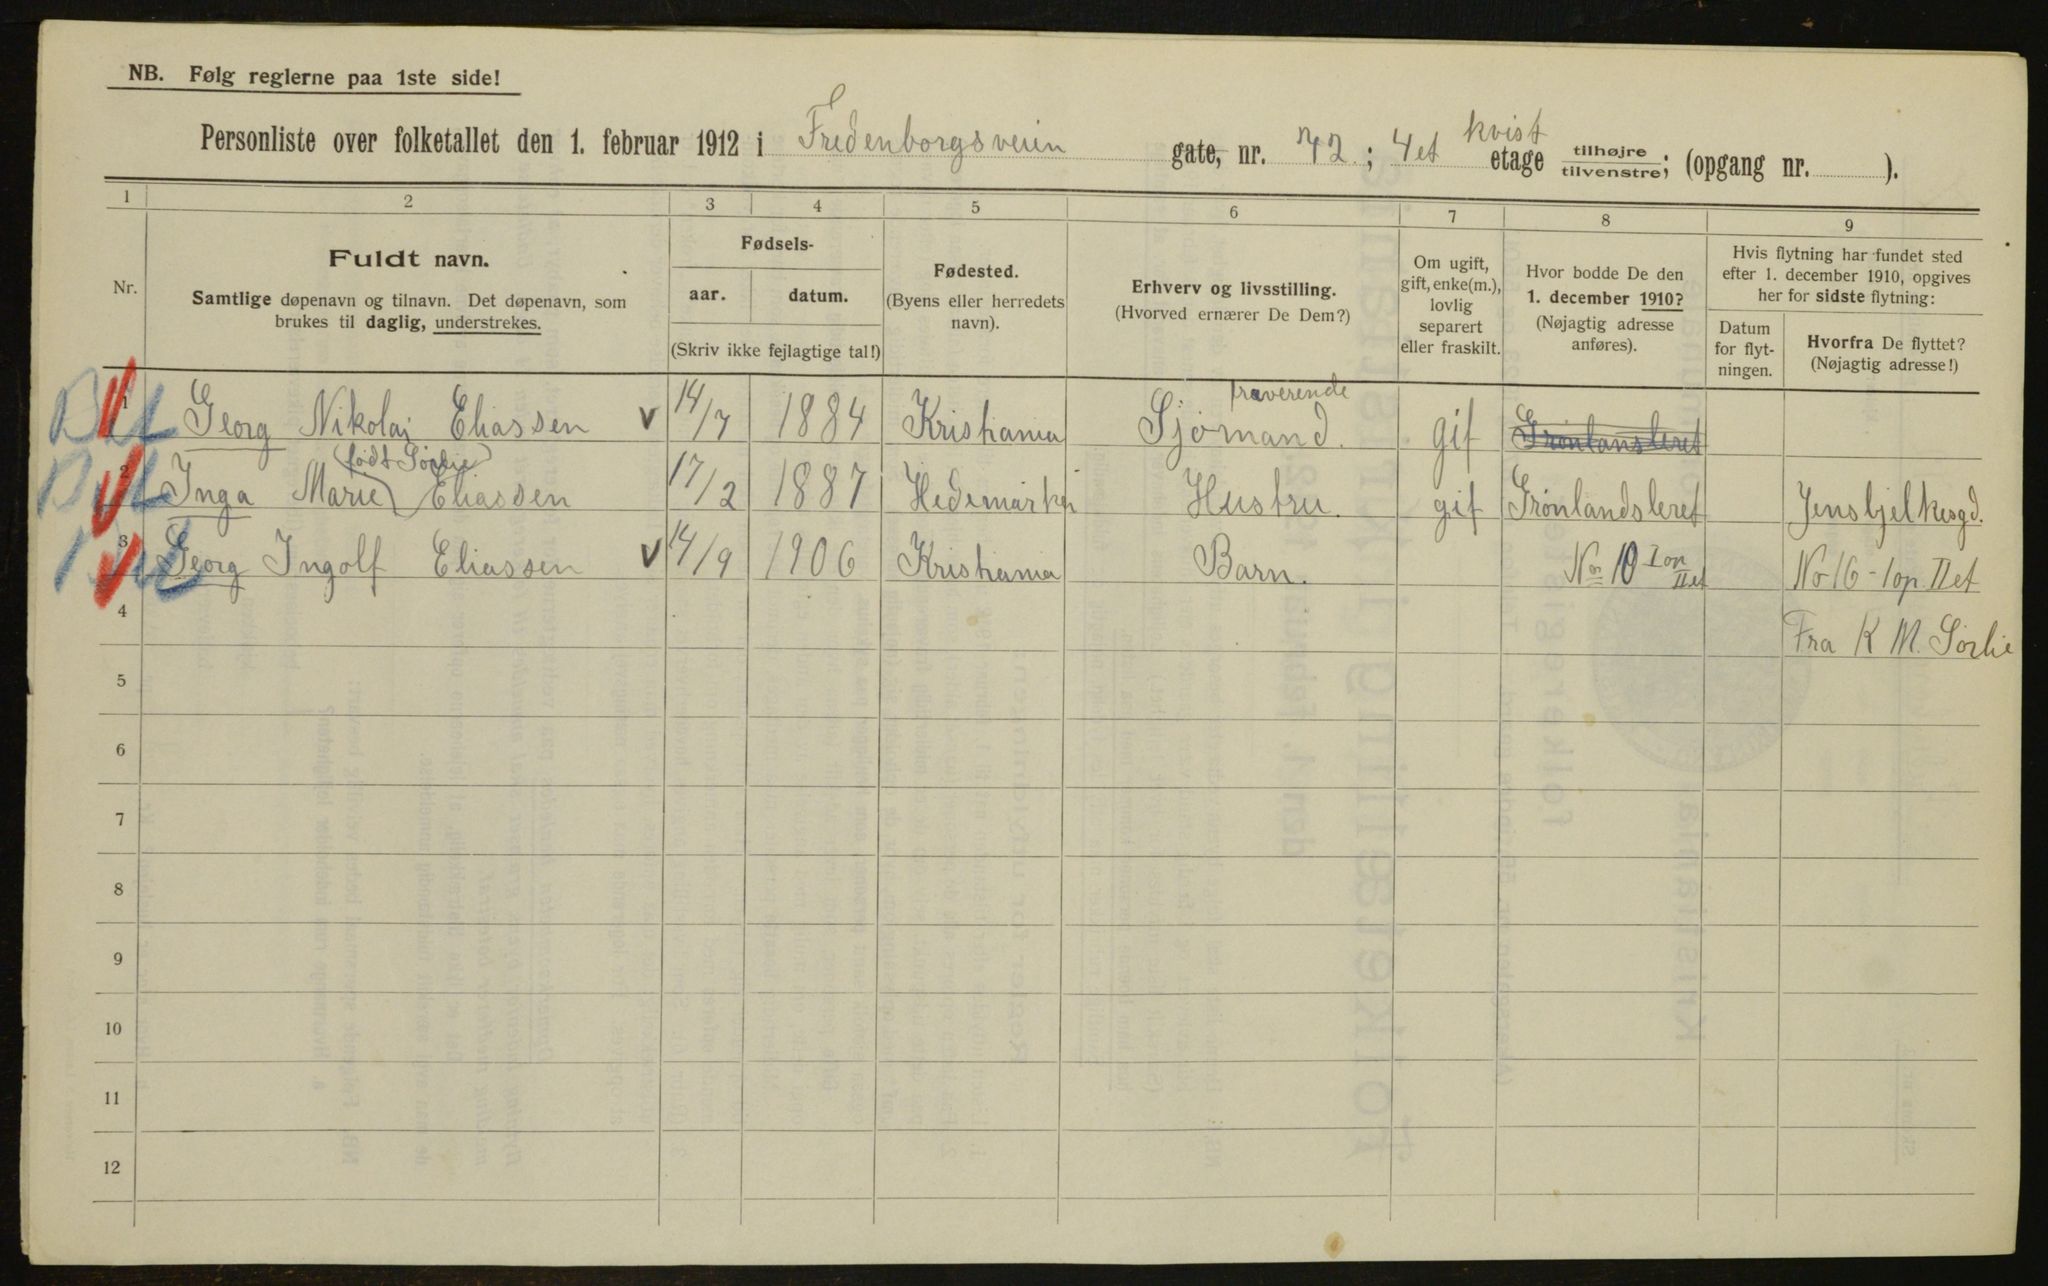 NB. Følg reglerne paa 1ste side!
Personliste over folketallet den 1. februar 1912 i Fredenborgsveien gate, nr. 42; 4et kvist etage tilhøjre tilvenstre; (opgang nr. ).
1 2 3 4 5 6 7 8 9
Nr.
Fuldt navn.
Samtlige døpenavn og tilnavn. Det døpenavn, som
brukes til daglig, understrekes.
Fødsels-
aar. datum.
(Skriv ikke fejlagtige tal!)
Fødested.
(Byens eller herredets
navn).
Erhverv og livsstilling.
(Hvorved ernærer De Dem?)
Om ugift,
gift, enke(m.),
lovlig
separert
eller fraskilt.
Hvor bodde De den
1. december 1910?
(Nøjagtig adresse
anføres).
Hvis flytning har fundet sted
efter 1. december 1910, opgives
her for sidste flytning:
Datum
for flyt-
ningen.
Hvorfra De flyttet?
(Nøjagtig adresse!)
fraverende
1 Georg Nikolaj Eliassen v 14/7 1884 Kristiania Sjømand. gif Grønlansleret
(født Sørlie)
2 Inga Marie Eliassen 17/2 1887 Hedemarken Hustru. gif Grønlandsleret Jensbjelkesgd.
3 Georg Ingolf Eliassen v 14/9 1906 Kristiania Barn. No 10 I op IIet No 16 - 1 op IIet
4 Fra K M. Sørlie
5
6
7
8
9
10
11
12